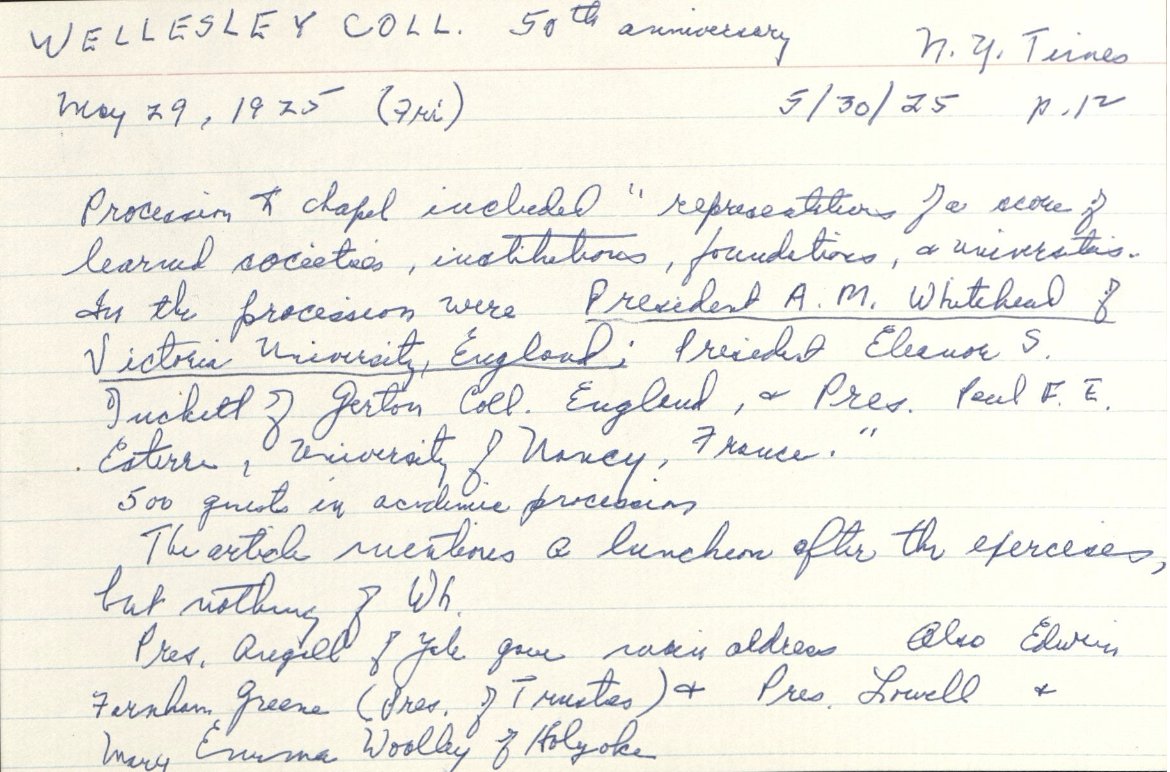 WELLESLEY COLL. 50th anniversary N.Y. Times
May 29, 1925 (Fri) 5/30/25 p.12
Procession to chapel included "representatives of a score of
learned societies, institutions, foundations, & universities.
In the procession were President A. M. Whitehead of
Victoria University, England; President Eleanor S.
Duckett of Gerton Coll. England, & Pres. Paul F. E.
Esterre, University of Nancy, France."
500 guests in academic procession
The article mentions a luncheon after the exercises,
but nothing of Wh.
Pres. Angell of Yale gave main address Also Edwin
Farnham Greene (Pres. of Trustees) & Pres. Lowell &
Mary Emma Woolley of Holyoke